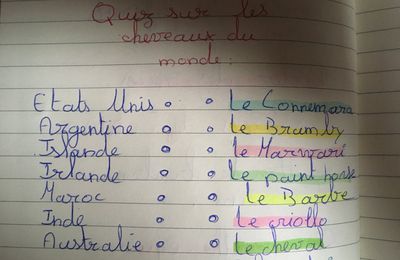 Quiz sur les
cheveaux du
monde:
Etats Unis le Connemara
Argentine le Brumby
Islande le Marwari
Irlande le paint horse
Maroc le Barbe
Inde le criollo
Australie le cheval